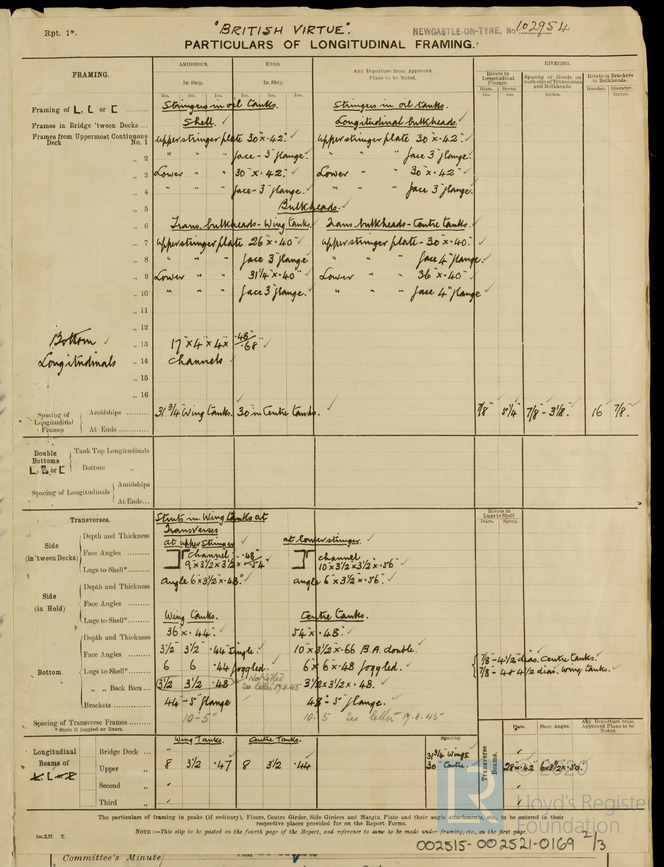 Rpt. 1*.
"BRITISH VIRTUE".
NEWCASTLE-ON-TYNE, No. 102954
PARTICULARS OF LONGITUDINAL FRAMING.
FRAMING.
AMIDSHIPS.
ENDS.
Any Departure from Approved Plans to be Noted.
RIVETING.
In Ship.
In Ship.
Rivets in Longitudinal Frames.
Spacing of Rivets on each side of Transverses and Bulkheads.
Rivets in Brackets to Bulkheads.
Diam. Spcng.
Number. Diameter.
Ins. Ins. Ins. Ins. Ins. Ins.
Framing of L, L or C
Stringers in oil tanks. Stringers in oil tanks.
Frames in Bridge 'tween Decks
Shell. Longitudinal bulkheads.
Frames from Uppermost Continuous Deck No. 1
upper stringer plate 30" x .42" upper stringer plate 30" x .42"
" 2 " " face - 3" flange. " " face 3" flange.
" 3 Lower " " 30" x .42" Lower " " 30" x .42"
" 4 " " face - 3" flange. " " face 3" flange.
" 5 Bulkheads.
" 6 Trans. bulkheads - Wing tanks. Trans. bulkheads - Centre tanks.
" 7 upper stringer plate 26" x .40" upper stringer plate - 30" x .40"
" 8 " " face 3" flange " " face 4" flange
" 9 Lower " " 31 1/4" x .40" Lower " " 36" x .40"
" 10 " " face 3" flange. " " face 4" flange
" 11
" 12
Bottom " 13 17" x 4" x 4" x .48/.68
Longitudinals " 14 Channels
" 15
" 16
Spacing of Longitudinal Frames
Amidships 31 3/4" Wing tanks. 30" in Centre tanks. 7/8" 5 1/4" 7/8" - 3 1/8" 16 7/8"
At Ends
Double Bottoms L, L or C
Tank Top Longitudinals
Bottom "
Spacing of Longitudinals
Amidships
At Ends
Transverses.
Struts in Wing tanks at
Transverses
at upper stringer at lower stringer.
Rivets in Lugs to Shell
Diam. Spcng.
Side (in 'tween Decks)
Depth and Thickness
Face Angles channel 9" x 3 1/2" x 3 1/2" x .48/.54 channel 10" x 3 1/2" x 3 1/2" x .56"
Lugs to Shell*
angle 6" x 3 1/2" x .48" angle 6" x 3 1/2" x .56"
Side (in Hold)
Depth and Thickness
Face Angles
Lugs to Shell*
Wing tanks. Centre tanks.
Bottom
Depth and Thickness 36" x .44" 54" x .48"
Face Angles 3 1/2" 3 1/2" .44" single. 10" x 3 1/2" x .66 B.A. double.
Lugs to Shell* 6 6 .44 joggled. 6" x 6" x .48 joggled.
7/8 - 4 1/2 dias. centre tanks.
7/8 - 4 & 4 1/2 dias. wing tanks.
" " Back Bars 3 1/2 3 1/2 .48 Not fitted See letter 17.8.45 3 1/2" x 3 1/2" x .48.
Brackets 44 - 5" flange 48 - 5" flange.
Spacing of Transverse Frames 10-5" 10-5 See letter 17.8.45
* State if joggled or liners.
Wing Tanks. Centre Tanks.
Spacing
Plate. Face Angles. Any Departure from Approved Plans to be Noted.
Longitudinal Beams of
Bridge Deck
Upper " 8 3 1/2 .47 8 3 1/2 .44 31 3/4 Wings. 30 Centre. Transverse Beams. 28 x .42 6 x 3 1/2 x .50.
Second "
Third "
The particulars of framing in peaks (if ordinary), Floors, Centre Girder, Side Girders and Margin Plate and their angle attachments, to be entered in their respective places provided for on the Report Forms.
NOTE—This slip to be posted on the fourth page of the Report, and reference to same to be made under framing, etc., on the first page.
© 2020
Lloyd's Register
Foundation
002515-002521-0169 2/3
Committee's Minute